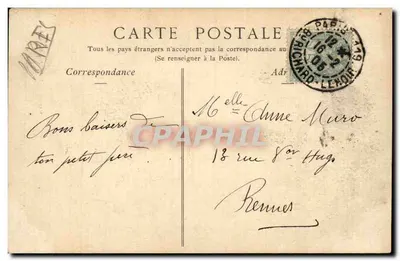 CARTE POSTALE
Tous les pays étrangers n'acceptent pas la correspondance au
(Se renseigner à la Poste).
Correspondance
Adr
PARIS 119
18
16 -2
06
RICHARD-LENOIR
CPAPHIL
Bons baisers de
ton petit père
Melle Anne Muro
18 rue Vor Hugo
Rennes